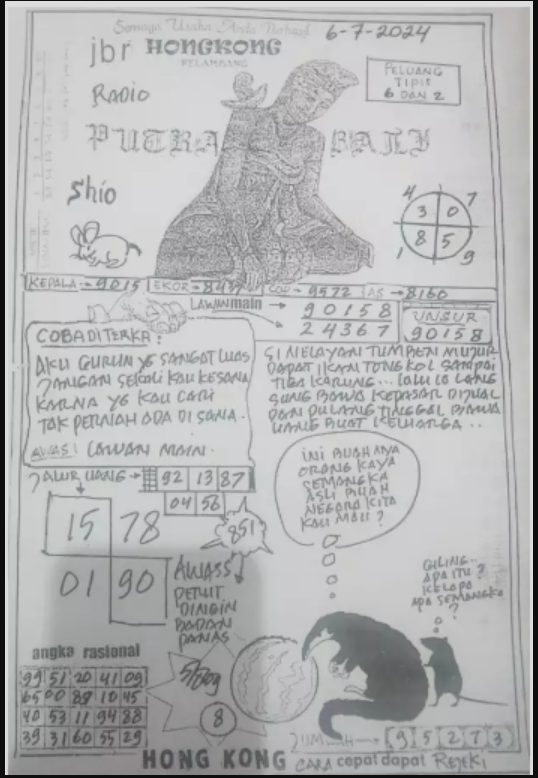 Semoga Usaha Anda Berhasil
6-7-2024
jbr HONGKONG
PELAMBANG
PELUANG
TIPIS
6 DAN 2
RADIO
PUTRA BALI
Shio
4 7
3 0
8 5
1 9
KEPALA → 9015 EKOR → 8437 COP → 9572 AS → 8160
LAWAN main → 90158
24367
UNSUR
90158
COBA DI TERKA:
AKU GURUN YG SANGAT LUAS
JANGAN SEKALI KAU KESANA
KARNA YG KAU CARI
TAK PERNAH ADA DI SANA.
AWAS! LAWAN MAIN.
SI NELAYAN TUMBEN MUJUR
DAPAT IKAN TONGKOL SAMPAI
TIGA KARUNG... LALU LANG
SUNG BAWA KEPASAR DIJUAL
DAN PULANG TINGGAL BAWA
UANG BUAT KELUARGA..
JALUR UANG → 92 13 87
04 56
851
15 78
01 90
INI BUAHNYA
ORANG KAYA
SEMANGKA
ASLI BUAH
NEGARA KITA
KAU MAU?
AWASS
PERUT
DINGIN
BADAN
PANAS
GILING..
APA ITU?
KELAPA
APA SEMANGKA
?
angka rasional
99 51 20 41 09
65 00 88 10 45
40 53 11 94 88
39 31 60 55 29
8
JUMLAH → 9 5 2 7 3
HONG KONG CARA cepat dapat REJEKI